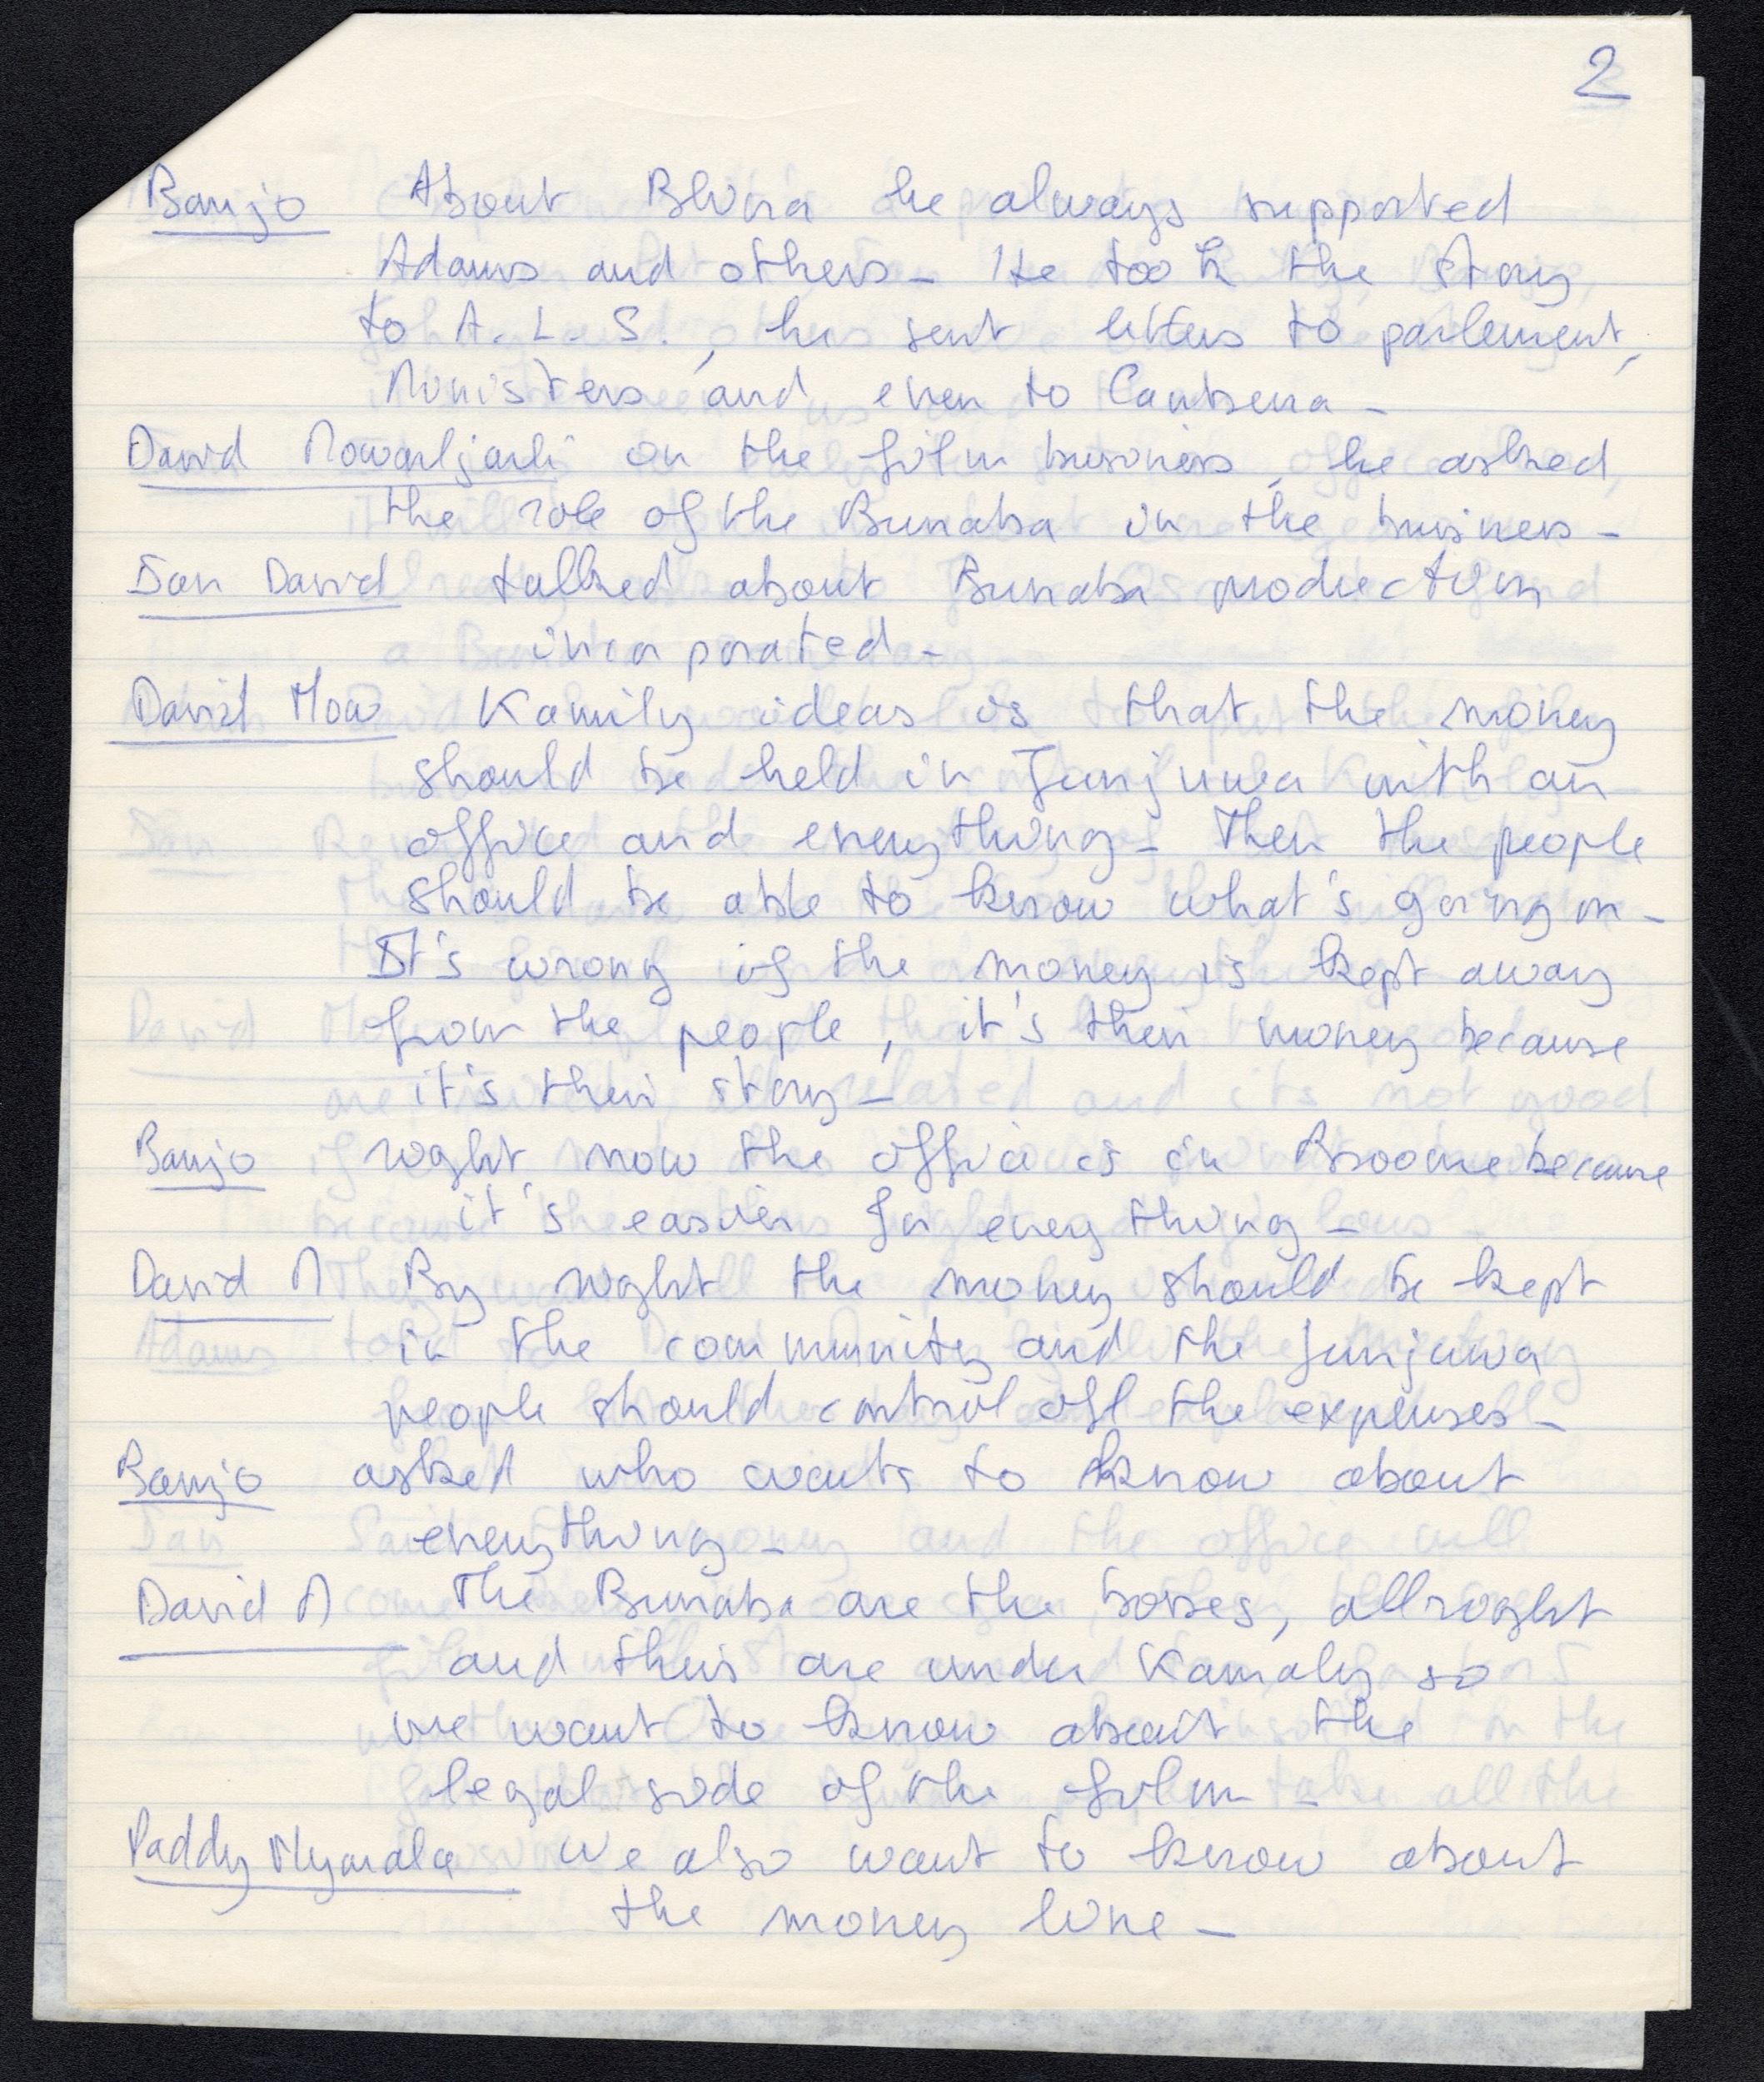 2
Banjo About Blina he always supported
Adams and others - He took the story
to A. L. S., has sent letters to parlement,
Ministers and even to Canberra -
David Mowarljarli on the film business, he asked
the role of the Bunaba in the business -
Ian David talked about Bunaba production
incorporated -
David Mow Kamily ideas is that the money
should be held in Junjuwa with an
office and everything - Then the people
should be able to know what's going on -
It's wrong if the money is kept away
from the people, it's their money because
it's their story -
Banjo right now the office is in Broome because
it's easier for everything -
David M By right the money should be kept
in the community and the Junjuwa
people should control all the expenses -
Banjo asked who wants to know about
everything -
David M The Bunaba are the bosses, allright
and theirs are under Kamaly so
we want to know about the
legal side of the film -
Paddy we also want to know about
the money line -